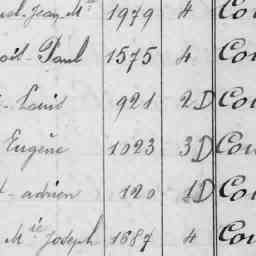 Jean Mie 1979 4 Cou
Paul 1575 4 Cou
Louis 921 2D Cou
Eugène 1023 3D Cou
adrien 120 1D Cou
Mie Joseph 1687 4 Cou